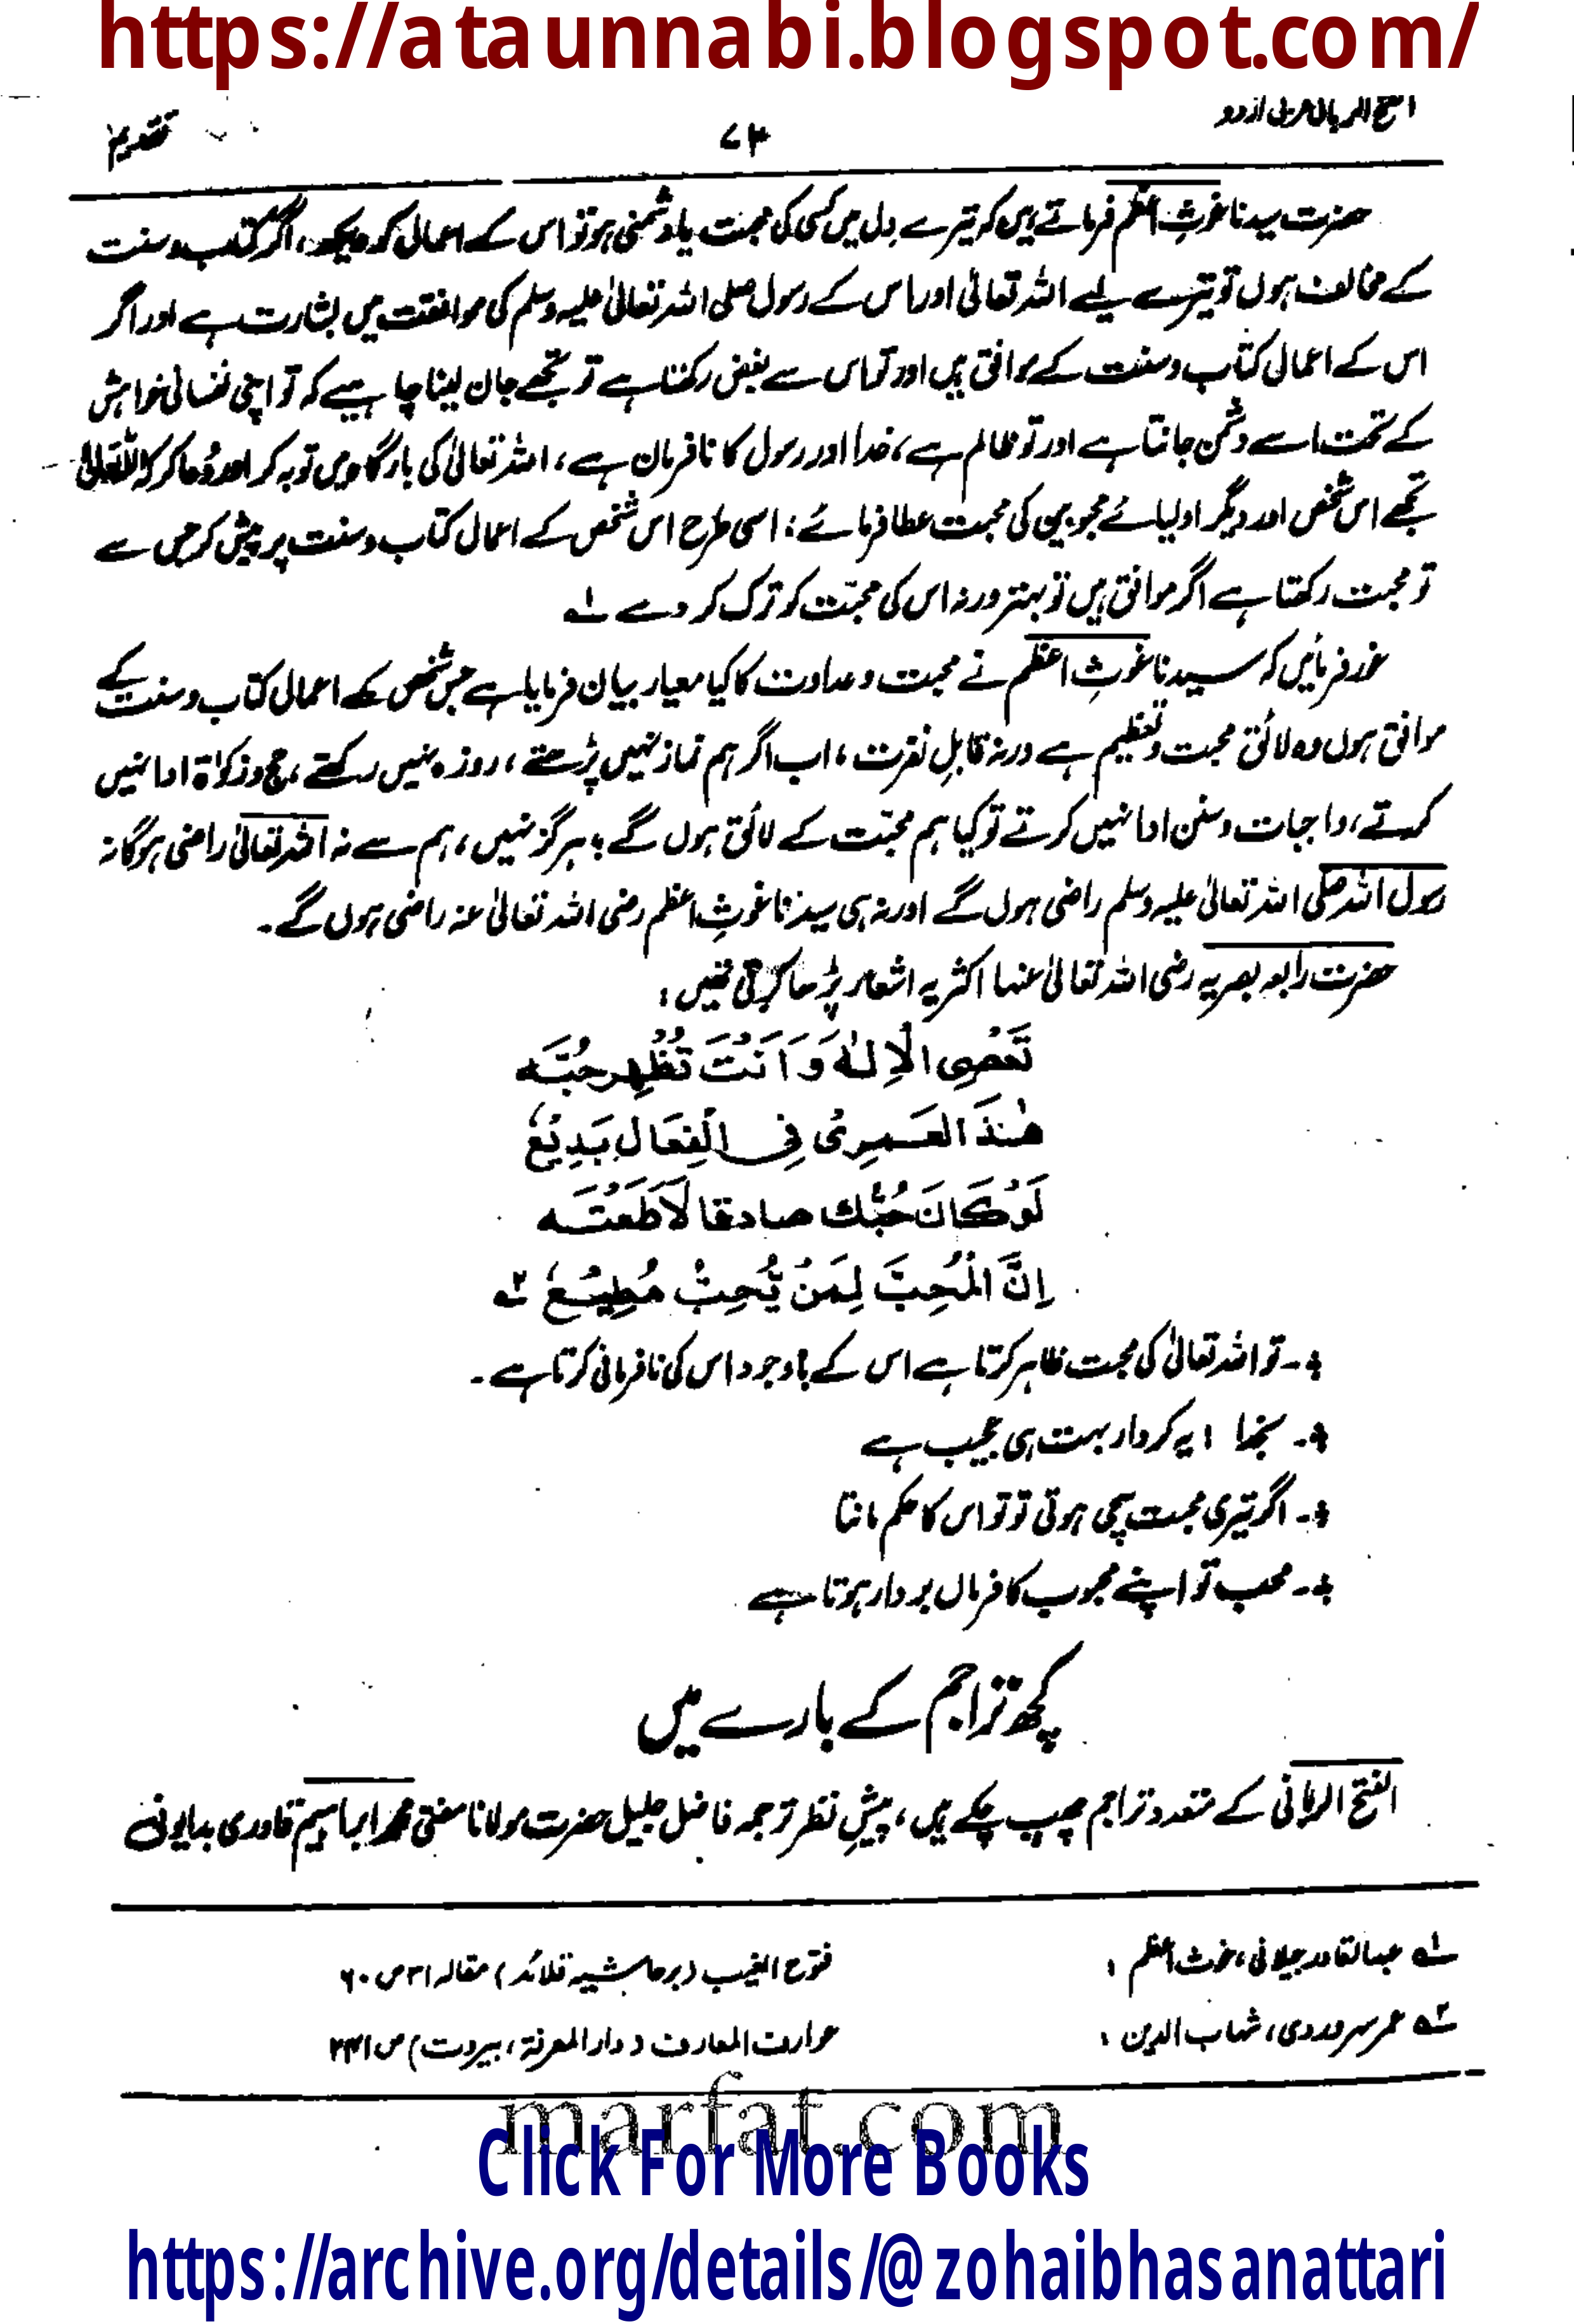 https://ataunnabi.blogspot.com/
الفتح الربانی عربی اردو
۷۴
تقدیم
حضرت سیدنا غوثِ اعظم فرماتے ہیں کہ تیرے دِل میں کسی کی محبت یا دشمنی ہو تو اس کے اعمال کو دیکھ، اگر کتاب و سنت
کے مخالف ہوں تو تیرے لیے اللہ تعالیٰ اور اس کے رسول صلی اللہ تعالیٰ علیہ وسلم کی موافقت میں بشارت ہے اور اگر
اس کے اعمال کتاب و سنت کے موافق ہیں اور تو اس سے بغض رکھتا ہے تو تجھے جان لینا چاہیے کہ تو اپنی نفسانی خواہش
کے تحت اسے دشمن جانتا ہے اور تو ظالم ہے، خدا اور رسول کا نافرمان ہے، اللہ تعالیٰ کی بارگاہ میں توبہ کر اور دُعا کر کہ اللہ تعالیٰ
تجھے اس شخص اور دیگر اولیائے محبوبین کی محبت عطا فرمائے؛ اسی طرح اس شخص کے اعمال کتاب و سنت پر پیش کر جس سے
تو محبت رکھتا ہے اگر موافق ہیں تو بہتر ورنہ اس کی محبّت کو ترک کر دے ؎۱
غور فرمائیں کہ سیدنا غوثِ اعظم نے محبت و عداوت کا کیا معیار بیان فرمایا ہے جس شخص کے اعمال کتاب و سنت کے
موافق ہوں وہ لائقِ محبت و تعظیم ہے ورنہ قابلِ نفرت، اب اگر ہم نماز نہیں پڑھتے، روزہ نہیں رکھتے، حج و زکوٰۃ ادا نہیں
کرتے، واجبات و سنن ادا نہیں کرتے تو کیا ہم محبّت کے لائق ہوں گے؟ ہرگز نہیں، ہم سے نہ اللہ تعالیٰ راضی ہوگا نہ
رسول اللہ صلی اللہ تعالیٰ علیہ وسلم راضی ہوں گے اور نہ ہی سیدنا غوثِ اعظم رضی اللہ تعالیٰ عنہ راضی ہوں گے۔
حضرت رابعہ بصریہ رضی اللہ تعالیٰ عنہا اکثر یہ اشعار پڑھا کرتی تھیں:
تَعْصِی الْاِلٰہَ وَاَنْتَ تُظْہِرُ حُبَّہ
ھٰذَا لَعَمْرِیْ فِی الْفِعَالِ بَدِیْعٌ
لَوْکَانَ حُبُّکَ صادقا لَاَطَعْتَہ
اِنَّ الْمُحِبَّ لِمَنْ یُّحِبُّ مُطِیْعٌ ؎۲
۔ تو اللہ تعالیٰ کی محبت ظاہر کرتا ہے اس کے باوجود اس کی نافرمانی کرتا ہے۔
۔ بخدا! یہ کردار بہت ہی عجیب ہے
۔ اگر تیری محبت سچی ہوتی تو تو اس کا حکم مانتا
۔ محب تو اپنے محبوب کا فرماں بردار ہوتا ہے
کچھ تراجم کے بارے میں
الفتح الربانی کے متعدد تراجم چھپ چکے ہیں، پیشِ نظر ترجمہ فاضل جلیل حضرت مولانا مفتی محمد ابراہیم قادری بدایونی
؎۱ عبدالقادر جیلانی، غوث اعظم : فتوح الغیب (بر حاشیہ قلائد) مقالہ ۳۱ ص ۶۰
؎۲ عمر سہروردی، شہاب الدین : عوارف المعارف (دار المعرفۃ، بیروت) ص ۳۴۱
marfat.com
Click For More Books
https://archive.org/details/@zohaibhasanattari